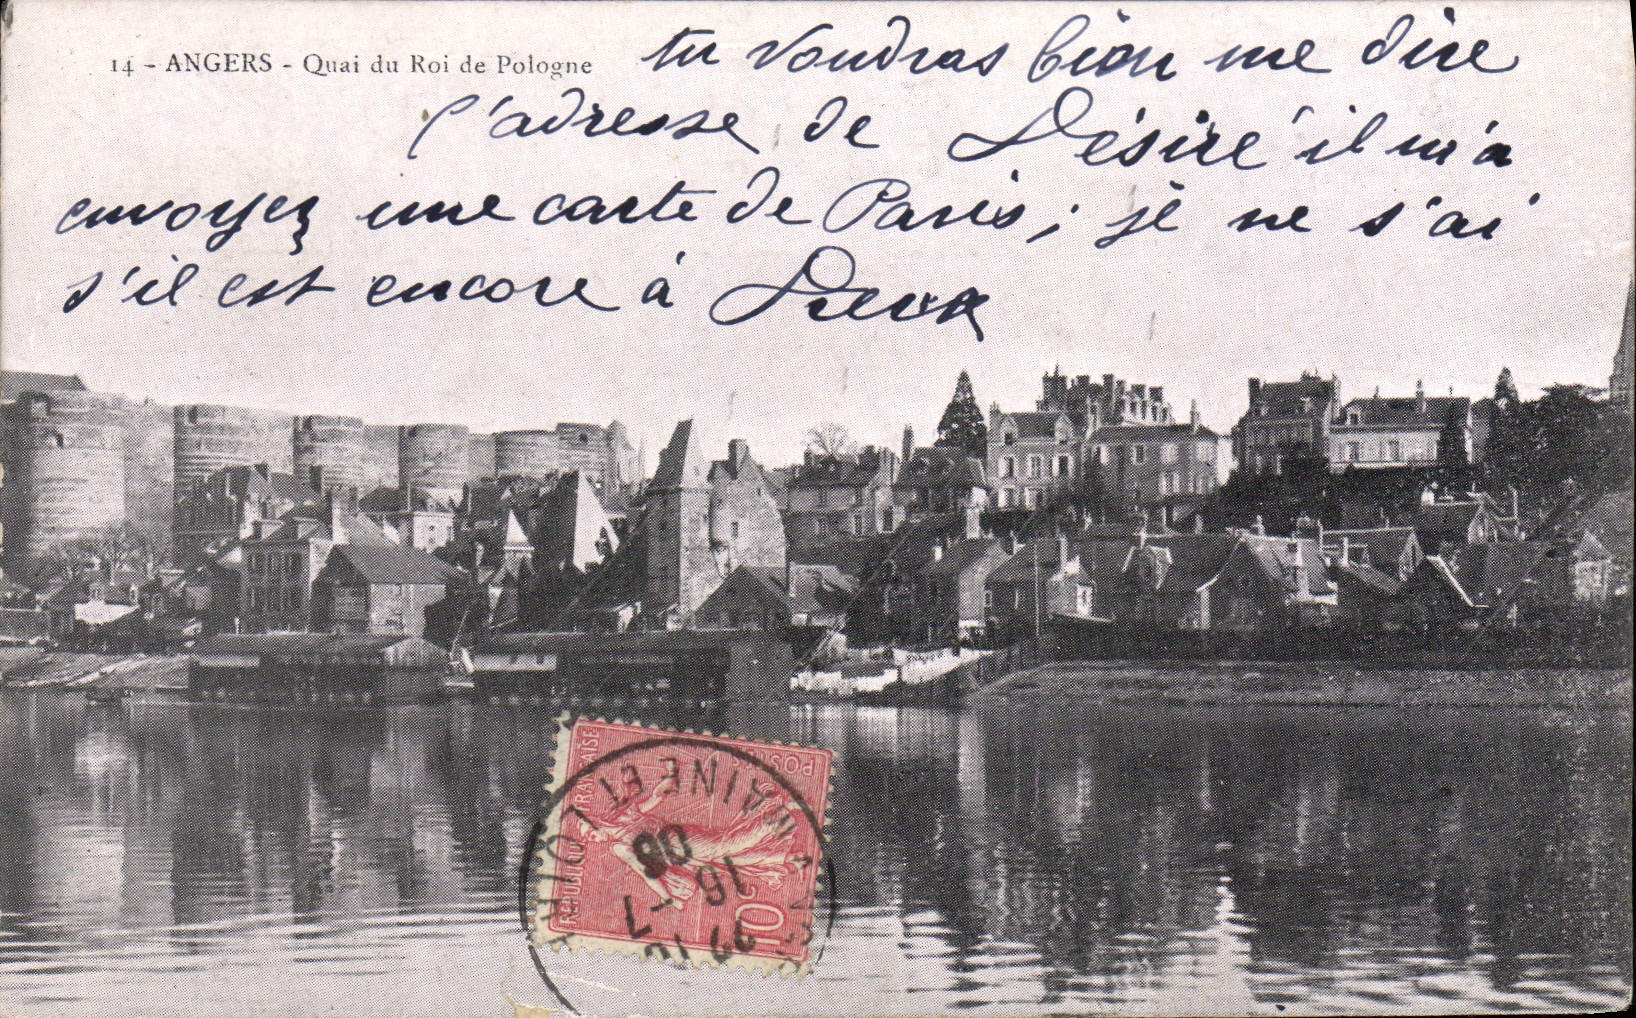 14 - ANGERS - Quai du Roi de Pologne
tu voudras bien me dire
l'adresse de Désiré il m'a
envoyez une carte de Paris; je ne s'ai
s'il est encore à Dreux
RÉPUBLIQUE FRANÇAISE
POSTES
10c
MAINE ET LOIRE
16-7
08